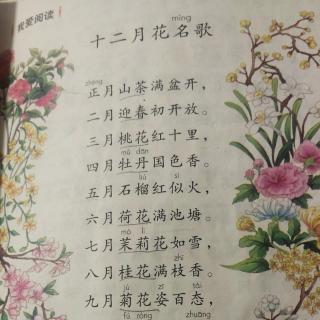 我爱阅读
míng
十二月花名歌
zhēng chá
正月山茶满盆开，
二月迎春初开放。
三月桃花红十里，
mǔ dān
四月牡丹国色香。
liú sì
五月石榴红似火，
六月荷花满池塘。
mò lì
七月茉莉花如雪，
zhī
八月桂花满枝香。
jú zī tài
九月菊花姿百态，
fú róng zhuāng